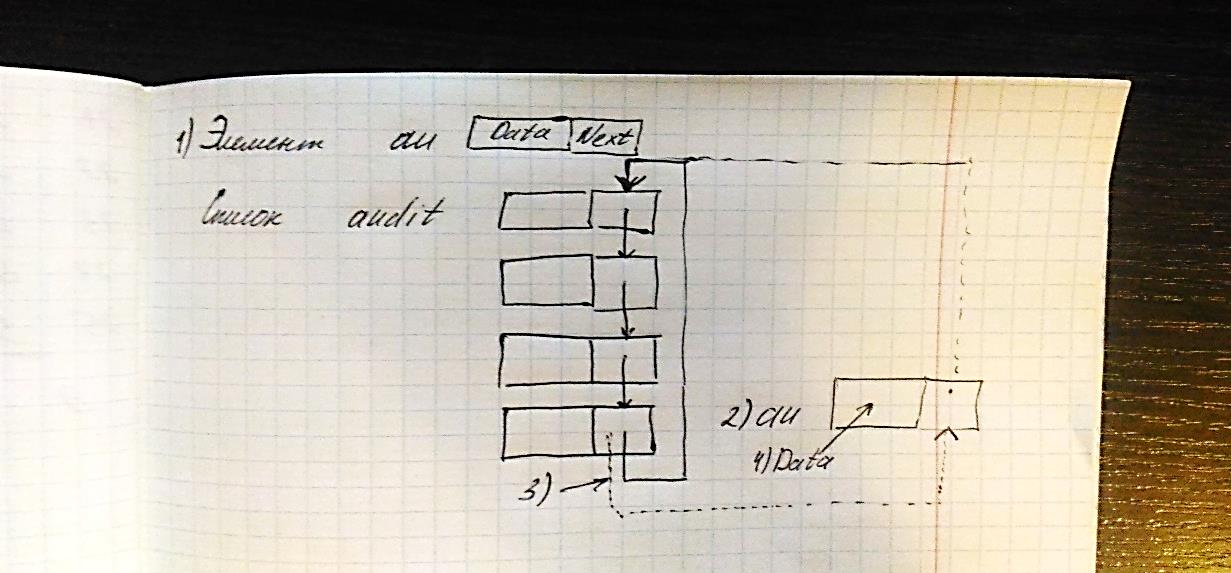 1) Элемент au Data Next
Список audit
2) au
4) Data
3)